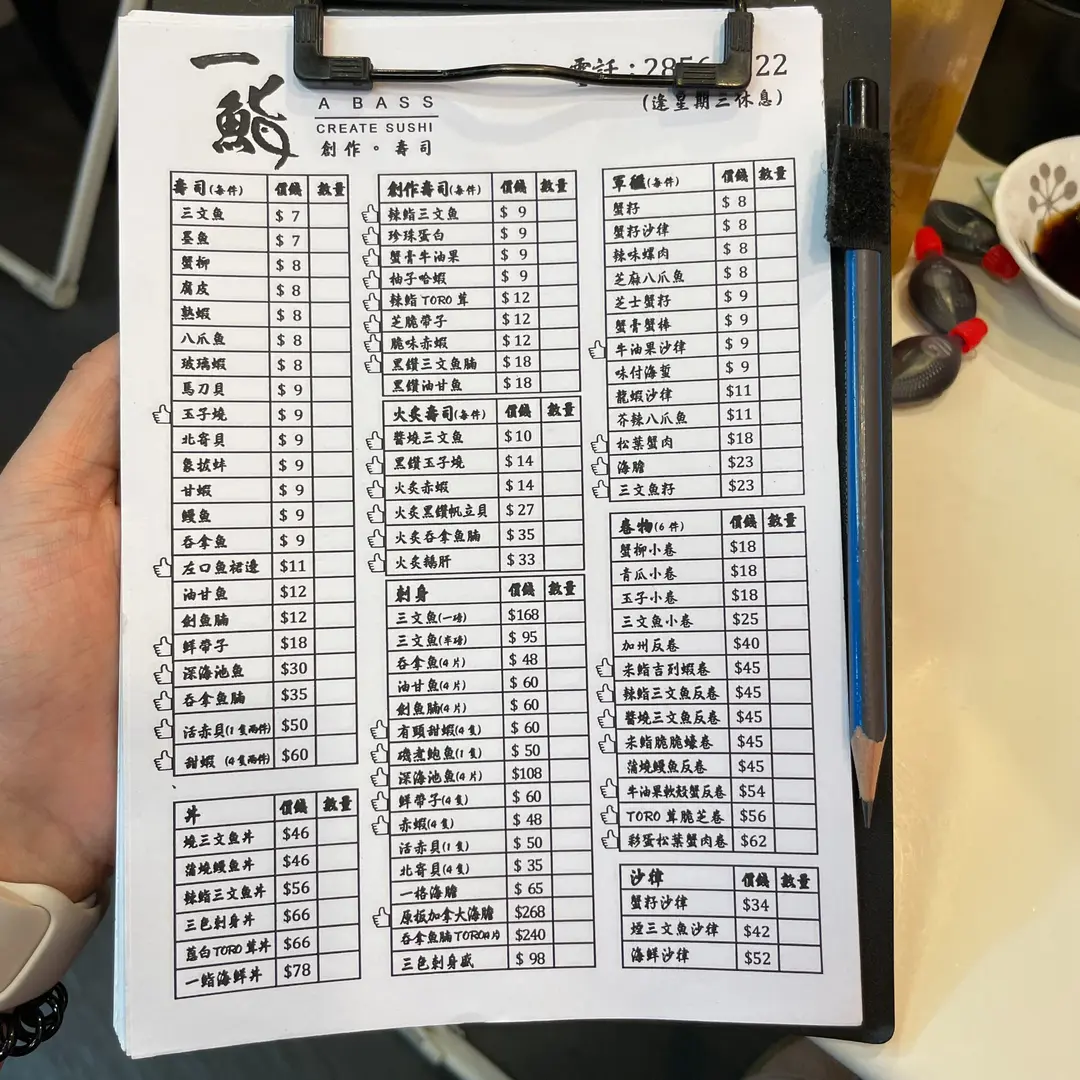 一鮨
A BASS
CREATE SUSHI
創作。壽司
電話：285
22
(逢星期三休息)
壽司(每件) 價錢 數量
三文魚 $ 7
墨魚 $ 7
蟹柳 $ 8
腐皮 $ 8
熟蝦 $ 8
八爪魚 $ 8
玻璃蝦 $ 8
馬刀貝 $ 9
玉子燒 $ 9
北寄貝 $ 9
象拔蚌 $ 9
甘蝦 $ 9
鰻魚 $ 9
吞拿魚 $ 9
左口魚裙邊 $11
油甘魚 $12
劍魚腩 $12
鮮帶子 $18
深海池魚 $30
吞拿魚腩 $35
活赤貝(1隻兩件) $50
甜蝦 (4隻兩件) $60
丼 價錢 數量
燒三文魚丼 $46
蒲燒鰻魚丼 $46
辣鮨三文魚丼 $56
三色刺身丼 $66
蔥白TORO茸丼 $66
一鮨海鮮丼 $78
創作壽司(每件) 價錢 數量
辣鮨三文魚 $ 9
珍珠蛋白 $ 9
蟹膏牛油果 $ 9
柚子哈蝦 $ 9
辣鮨TORO茸 $12
芝脆帶子 $12
脆味赤蝦 $12
黑鑽三文魚腩 $18
黑鑽油甘魚 $18
火炙壽司(每件) 價錢 數量
醬燒三文魚 $10
黑鑽玉子燒 $14
火炙赤蝦 $14
火炙黑鑽帆立貝 $27
火炙吞拿魚腩 $35
火炙鵝肝 $33
刺身 價錢 數量
三文魚(一磅) $168
三文魚(半磅) $ 95
吞拿魚(4片) $ 48
油甘魚(4片) $ 60
劍魚腩(4片) $ 60
有頭甜蝦(4隻) $ 60
磯煮鮑魚(1隻) $ 50
深海池魚(4片) $108
鮮帶子(4隻) $ 60
赤蝦(4隻) $ 48
活赤貝(1隻) $ 50
北寄貝(4隻) $ 35
一格海膽 $ 65
原板加拿大海膽 $268
吞拿魚腩TORO(4片) $240
三色刺身盛 $ 98
軍艦(每件) 價錢 數量
蟹籽 $ 8
蟹籽沙律 $ 8
辣味螺肉 $ 8
芝麻八爪魚 $ 8
芝士蟹籽 $ 9
蟹膏蟹棒 $ 9
牛油果沙律 $ 9
味付海蜇 $ 9
龍蝦沙律 $11
芥辣八爪魚 $11
松葉蟹肉 $18
海膽 $23
三文魚籽 $23
卷物(6件) 價錢 數量
蟹柳小卷 $18
青瓜小卷 $18
玉子小卷 $18
三文魚小卷 $25
加州反卷 $40
未鮨吉列蝦卷 $45
辣鮨三文魚反卷 $45
醬燒三文魚反卷 $45
未鮨脆脆蠔卷 $45
蒲燒鰻魚反卷 $45
牛油果軟殼蟹反卷 $54
TORO茸脆芝卷 $56
彩蛋松葉蟹肉卷 $62
沙律 價錢 數量
蟹籽沙律 $34
煙三文魚沙律 $42
海鮮沙律 $52